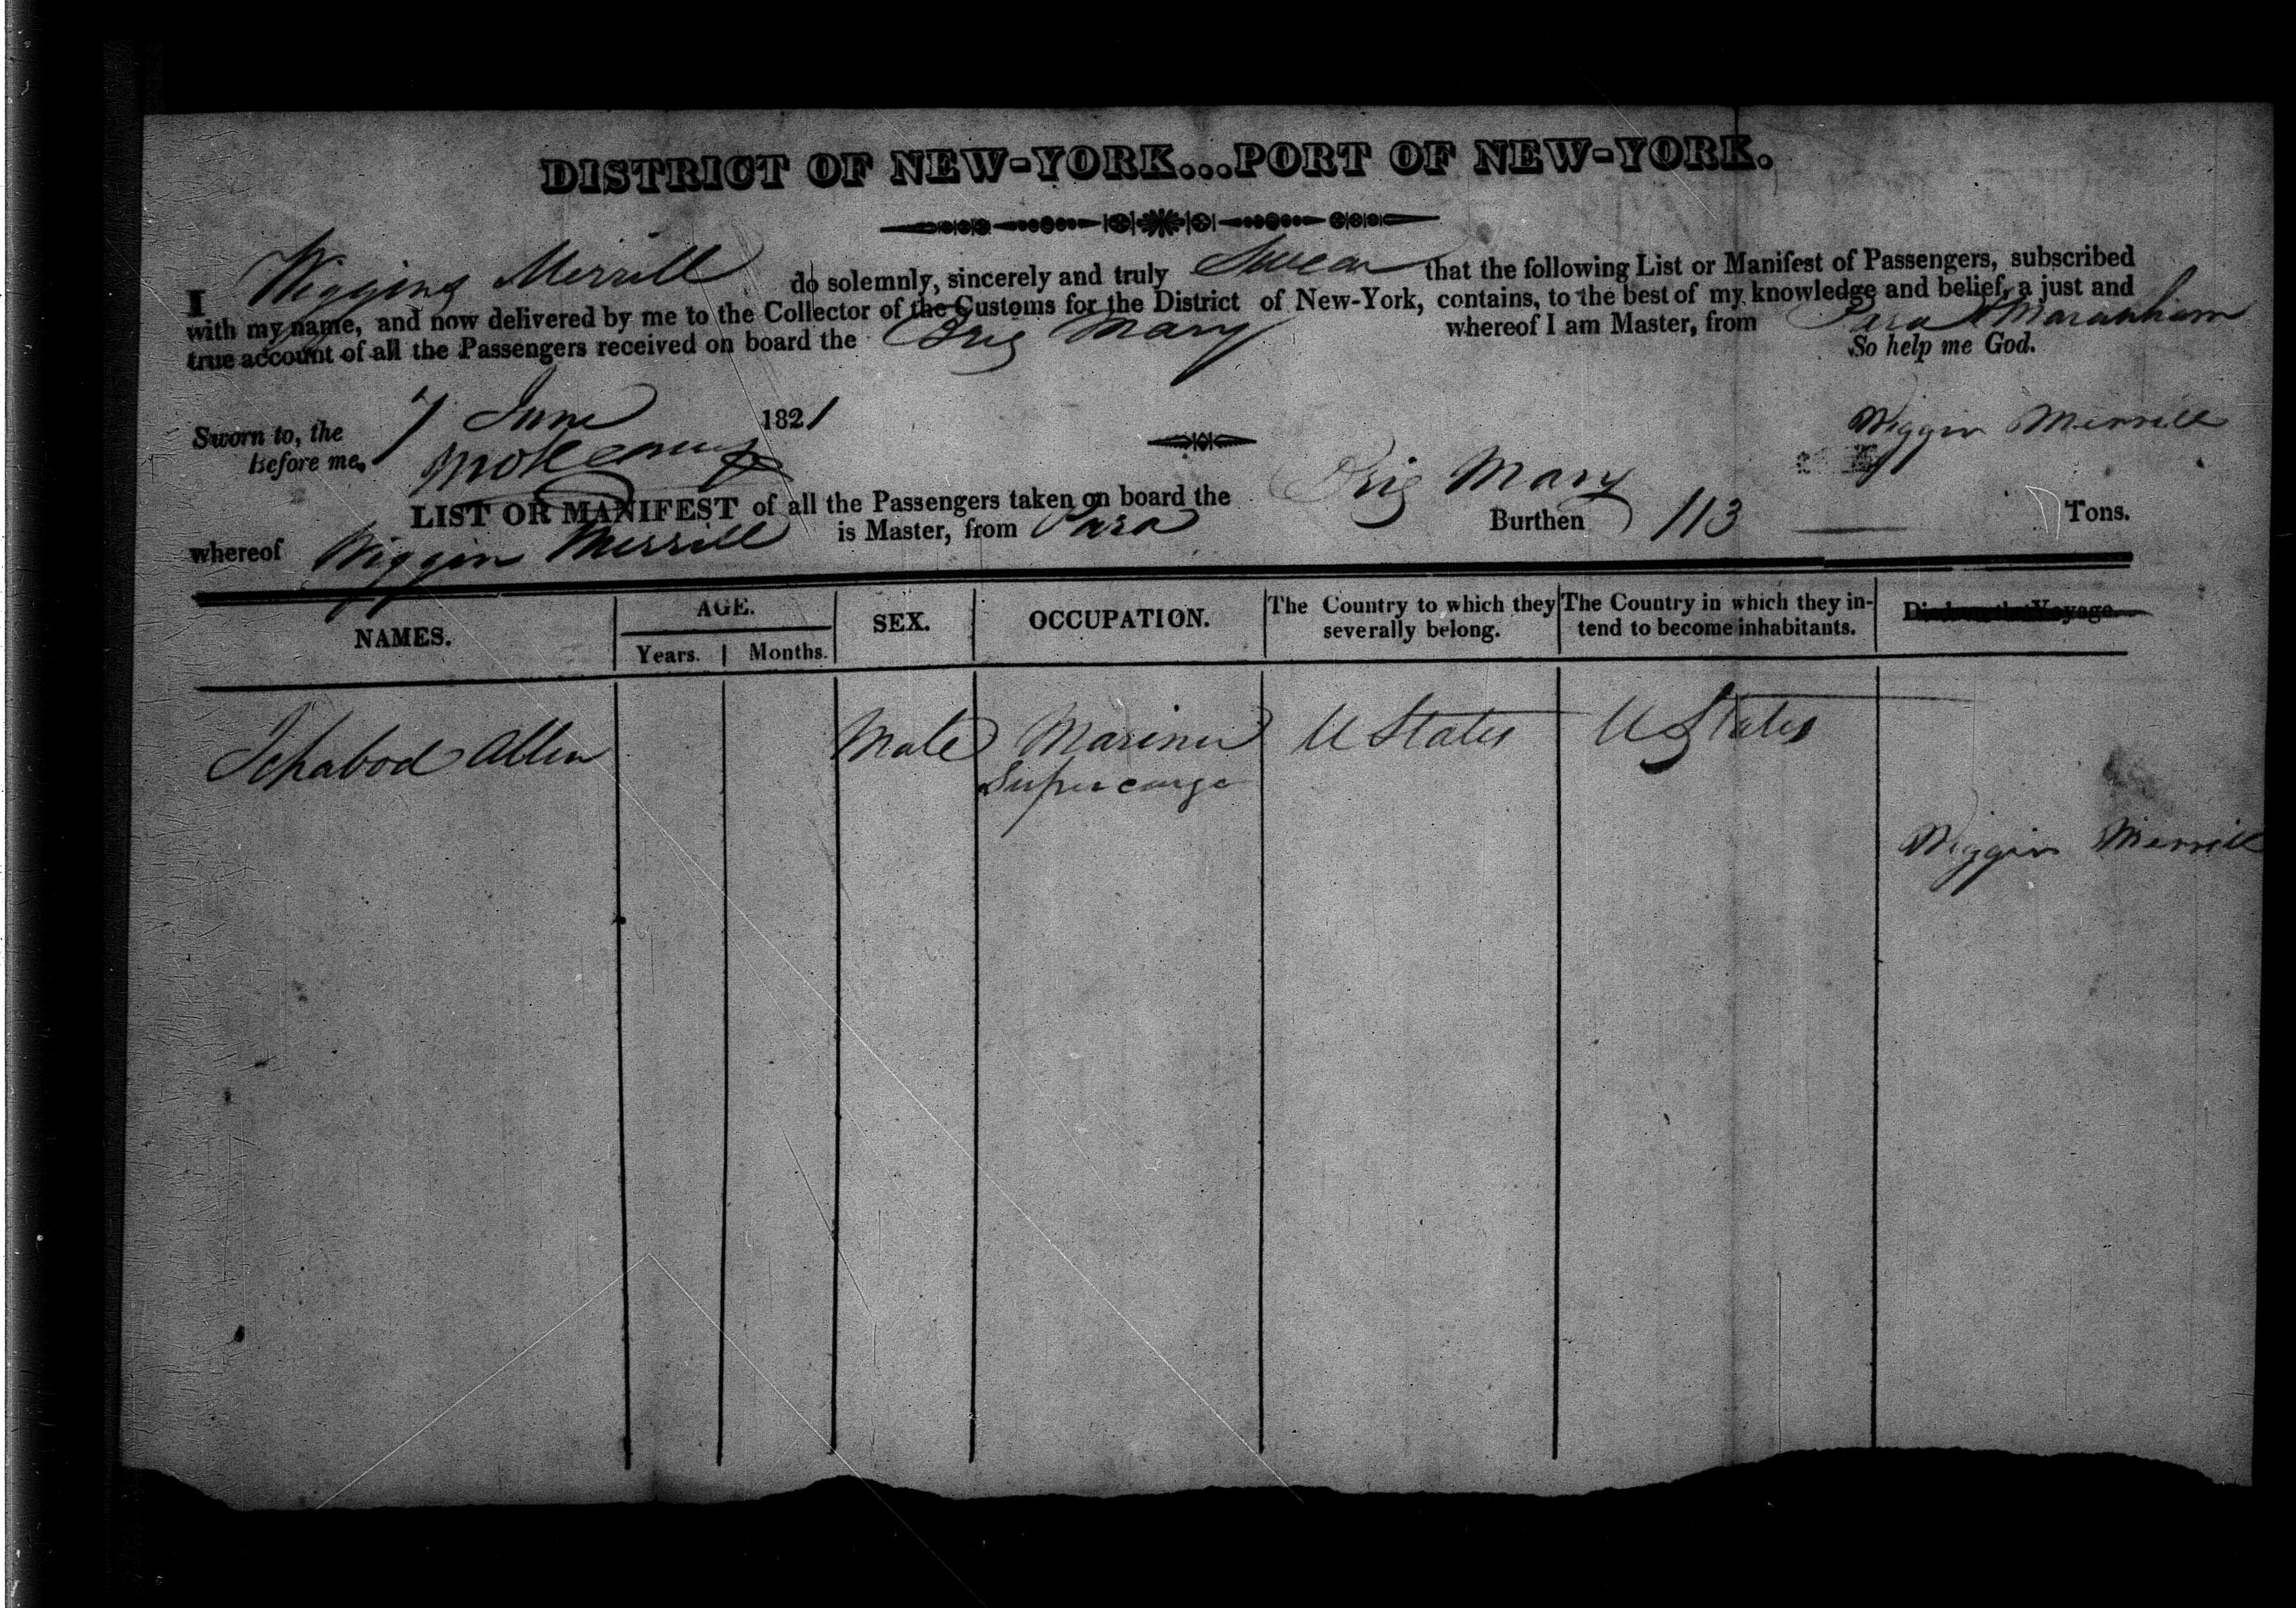 DISTRICT OF NEW-YORK...PORT OF NEW-YORK.
I Wiggins Merrill do solemnly, sincerely and truly Swear that the following List or Manifest of Passengers, subscribed
with my name, and now delivered by me to the Collector of the Customs for the District of New-York, contains, to the best of my knowledge and belief, a just and
true account of all the Passengers received on board the Brig Mary whereof I am Master, from Para & Maranham
So help me God.
Sworn to, the 7 June 1821
Before me,
Wiggin Merrill
LIST OR MANIFEST of all the Passengers taken on board the Brig Mary
whereof Wiggin Merrill is Master, from Para Burthen 113 Tons.
NAMES. AGE. SEX. OCCUPATION. The Country to which they severally belong. The Country in which they intend to become inhabitants. Died on the Voyage.
Years. Months.
Ichabod Allen Male Mariner U States U States
Supercargo
Wiggin Merrill